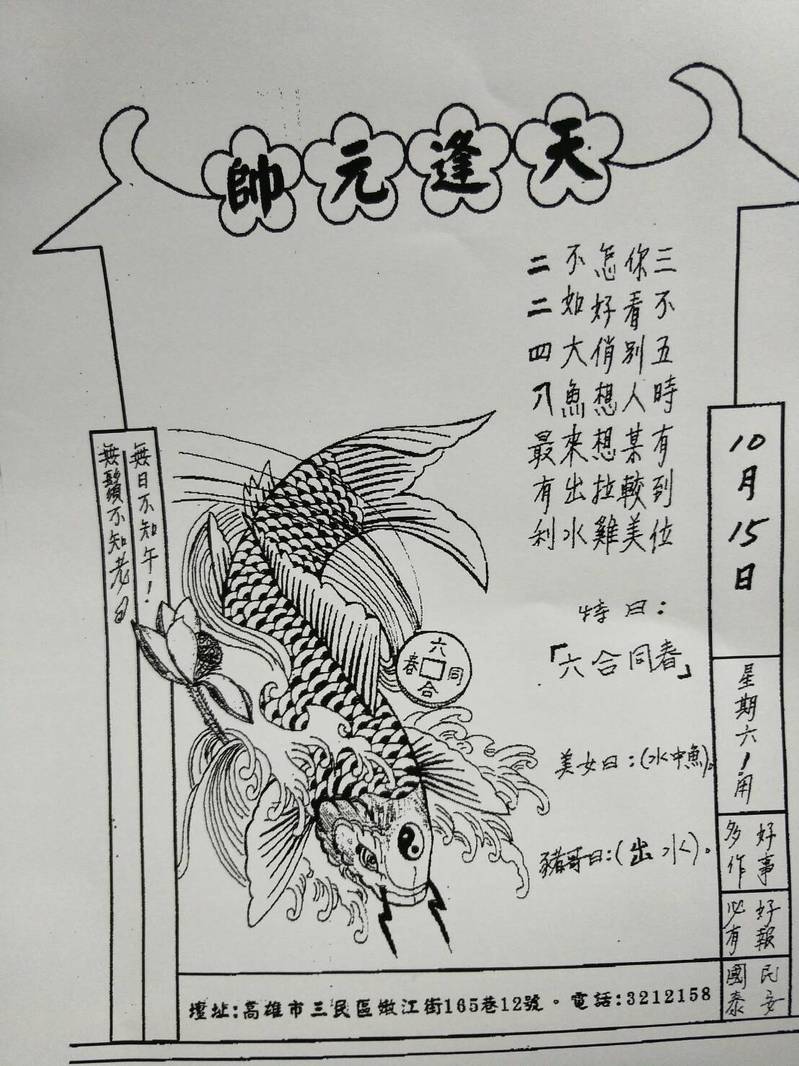 天逢元帥
三不五時有到位
你看別人某較美
怎好俏想想拉雞
不如大魚來出水
二二四八最有利
特曰：
「六合同春」
六合同春
美女曰：（水中魚）。
豬哥曰：（出水）。
10月15日
星期六！用
好事多作
好報必有
民安國泰
無日不知午！
無鬚不知老曰
壇址:高雄市三民區嫩江街165巷12號。電話:3212158